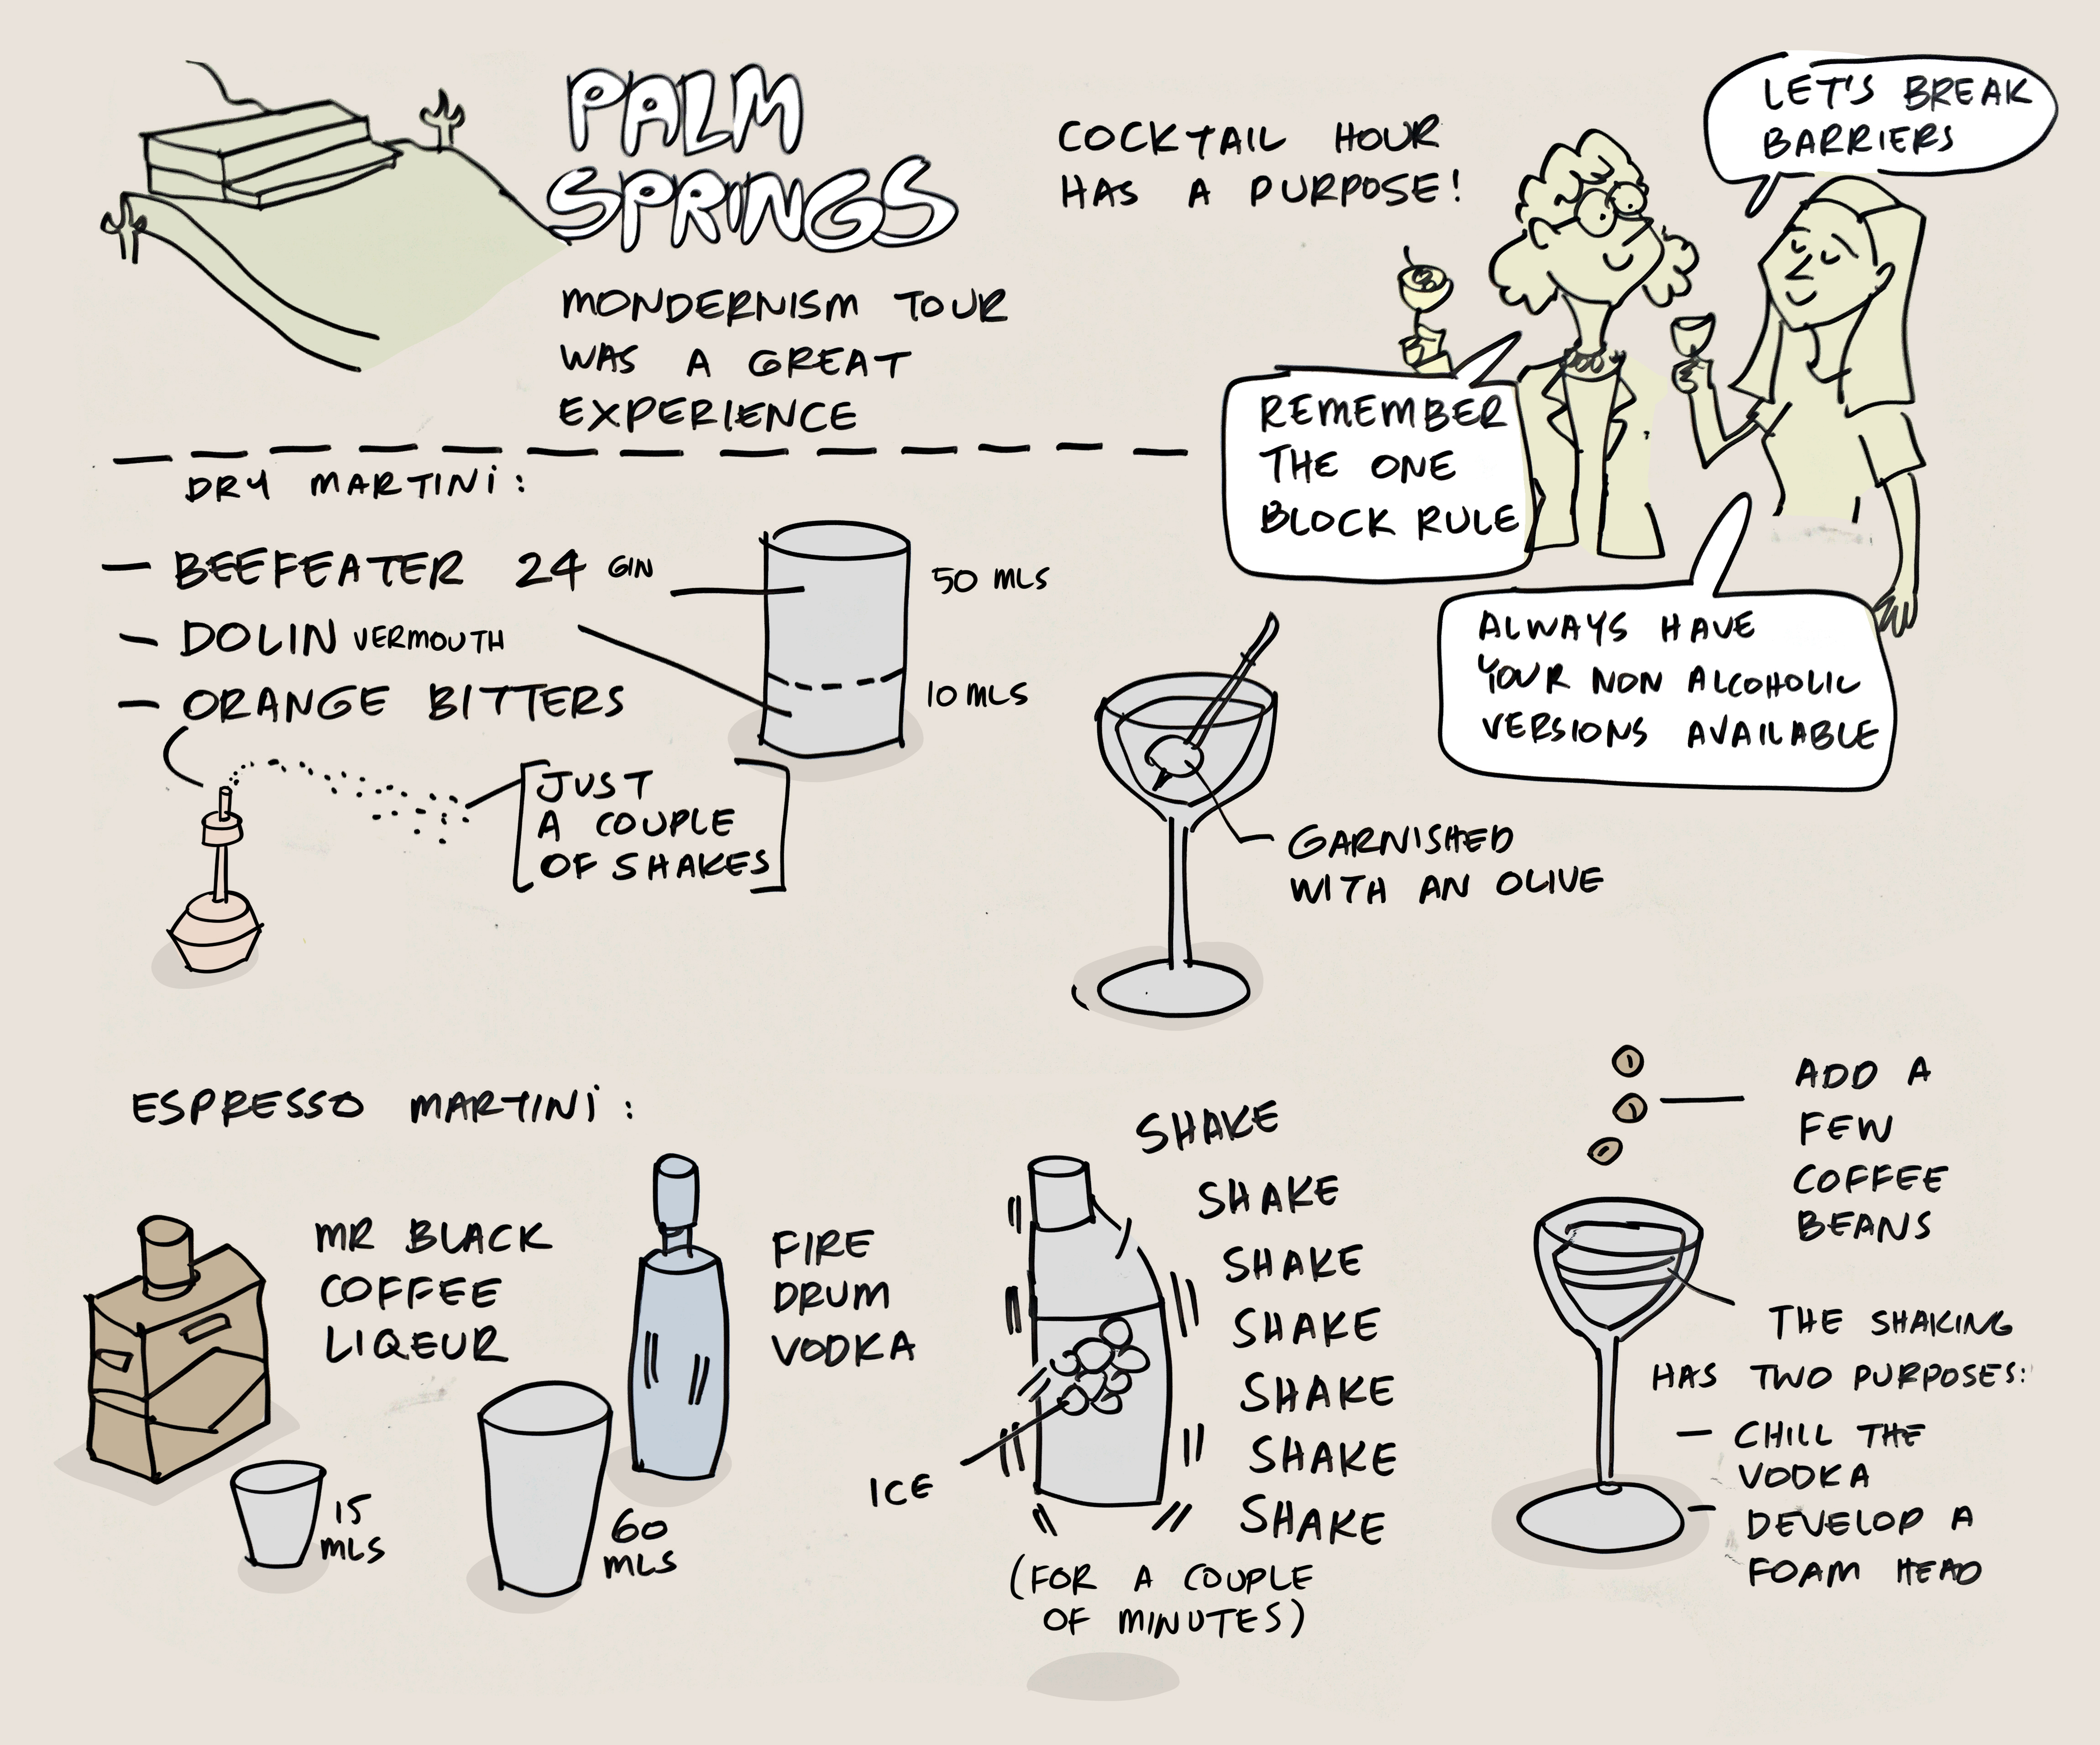 PALM
SPRINGS
MONDERNISM TOUR
WAS A GREAT
EXPERIENCE
COCKTAIL HOUR
HAS A PURPOSE!
LET'S BREAK
BARRIERS
REMEMBER
THE ONE
BLOCK RULE
ALWAYS HAVE
YOUR NON ALCOHOLIC
VERSIONS AVAILABLE
DRY MARTINI:
— BEEFEATER 24 GIN
— DOLIN VERMOUTH
— ORANGE BITTERS
50 MLS
10 MLS
JUST
A COUPLE
OF SHAKES
GARNISHED
WITH AN OLIVE
ESPRESSO MARTINI:
MR BLACK
COFFEE
LIQEUR
15
MLS
FIRE
DRUM
VODKA
60
MLS
SHAKE
SHAKE
SHAKE
SHAKE
SHAKE
SHAKE
SHAKE
ICE
(FOR A COUPLE
OF MINUTES)
ADD A
FEW
COFFEE
BEANS
THE SHAKING
HAS TWO PURPOSES:
— CHILL THE
VODKA
— DEVELOP A
FOAM HEAD